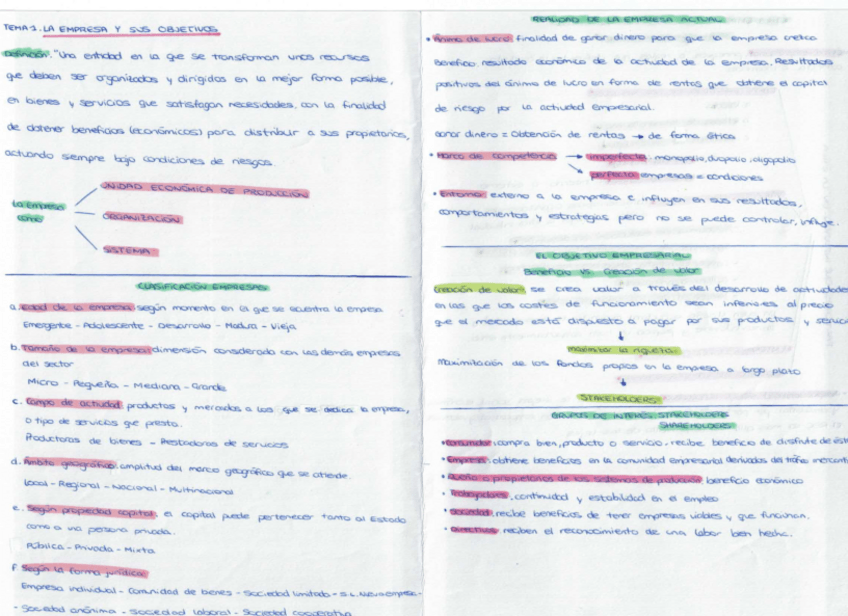 TEMA 1. LA EMPRESA Y SUS OBJETIVOS
Definición. "Una entidad en la que se transforman unos recursos
que deben ser organizados y dirigidos en la mejor forma posible,
en bienes y servicios que satisfagan necesidades, con la finalidad
de obtener beneficios (económicos) para distribuir a sus propietarios,
actuando siempre bajo condiciones de riesgos.
La empresa como
UNIDAD ECONÓMICA DE PRODUCCIÓN
ORGANIZACIÓN
SISTEMA
CLASIFICACIÓN EMPRESAS
a. Edad de la empresa: según momento en el que se encuentra la empresa
Emergente - Adolescente - Desarrollo - Madura - Vieja
b. Tamaño de la empresa: dimensión considerada con las demás empresas
del sector
Micro - Pequeña - Mediana - Grande
c. Campo de actividad: productos y mercados a los que se dedica la empresa,
o tipo de servicios que presta.
Productoras de bienes - Prestadoras de servicios
d. Ámbito geográfico: amplitud del marco geográfico que se atiende.
Local - Regional - Nacional - Multinacional
e. Según propiedad capital: el capital puede pertenecer tanto al Estado
como a una persona privada.
Pública - Privada - Mixta
f. Según la forma jurídica:
Empresa individual - Comunidad de bienes - Sociedad limitada - S.L. Nueva empresa -
- Sociedad anónima - Sociedad laboral - Sociedad cooperativa
REALIDAD DE LA EMPRESA ACTUAL
• Ánimo de lucro: finalidad de ganar dinero para que la empresa crezca
Beneficio resultado económico de la actividad de la empresa. Resultados
positivos del ánimo de lucro en forma de rentas que obtiene el capital
de riesgo por la actividad empresarial.
Ganar dinero = Obtención de rentas → de forma ética
• Marco de competencia → imperfecta: monopolio, duopolio, oligopolio
→ perfecta: empresas = condiciones
• Entorno: externo a la empresa e influyen en sus resultados,
comportamientos y estrategias pero no se puede controlar, influye.
EL OBJETIVO EMPRESARIAL
Beneficio VS. Creación de valor
Creación de valor: se crea valor a través del desarrollo de actividades
en las que los costes de funcionamiento sean inferiores al precio
que el mercado está dispuesto a pagar por sus productos y servicio
↓
maximizar la riqueza
Maximización de los fondos propios en la empresa a largo plazo
↓
STAKEHOLDERS
GRUPOS DE INTERÉS. STAKEHOLDERS
SHAREHOLDERS
• Consumidor: compra bien, producto o servicio, recibe beneficio de disfrute de est
• Empresa: obtiene beneficios en la comunidad empresarial derivados del tráfico mercanti
• Dueño o propietarios de los sistemas de producción: beneficio económico
• Trabajadores, continuidad y estabilidad en el empleo
• Sociedad: recibe beneficios de tener empresas viables y que funcionan.
• Directivos: reciben el reconocimiento de una labor bien hecha.